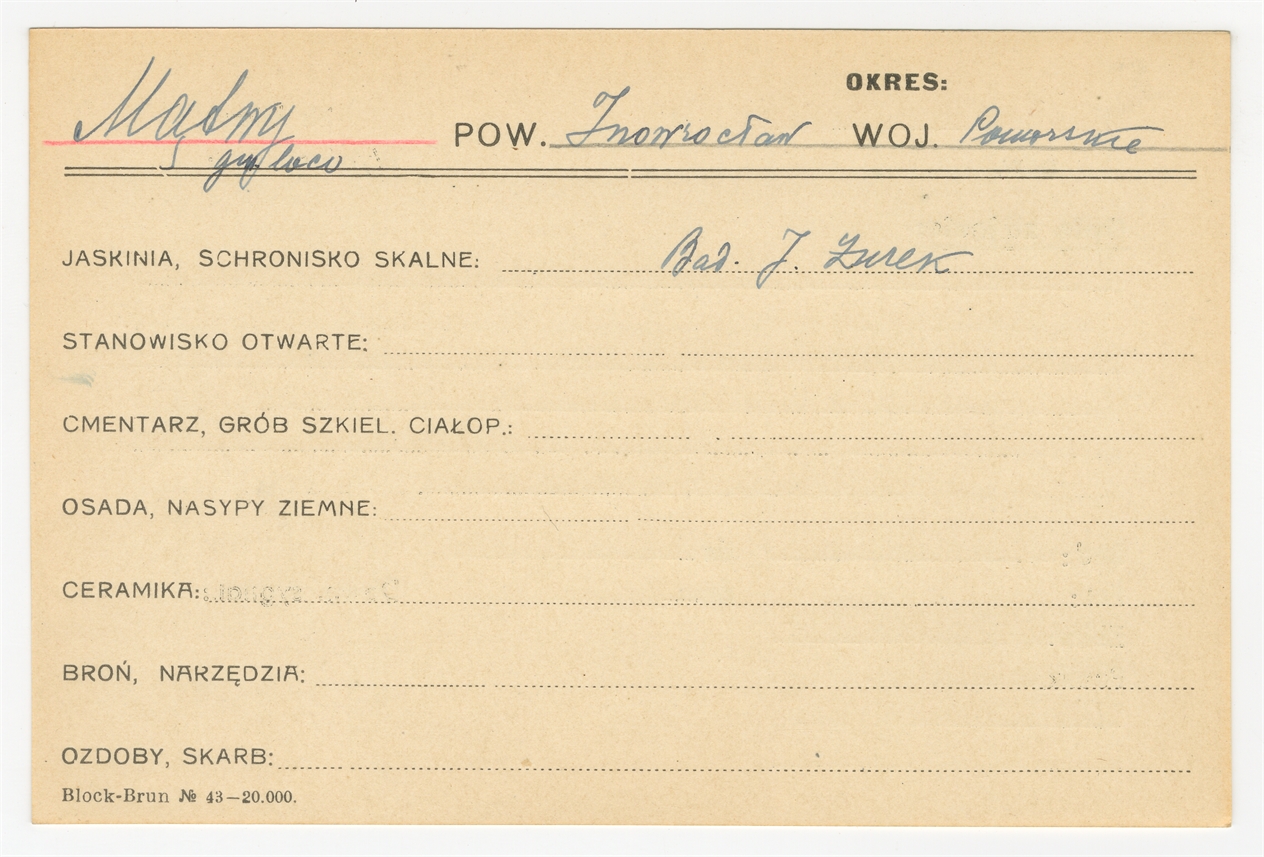 OKRES:
Mątwy POW. Inowrocław WOJ. Pomorskie
gm. loco
JASKINIA, SCHRONISKO SKALNE: Bad. J. Żurek
STANOWISKO OTWARTE:
CMENTARZ, GRÓB SZKIEL. CIAŁOP.:
OSADA, NASYPY ZIEMNE:
CERAMIKA:
BROŃ, NARZĘDZIA:
OZDOBY, SKARB:
Block-Brun № 43—20.000.